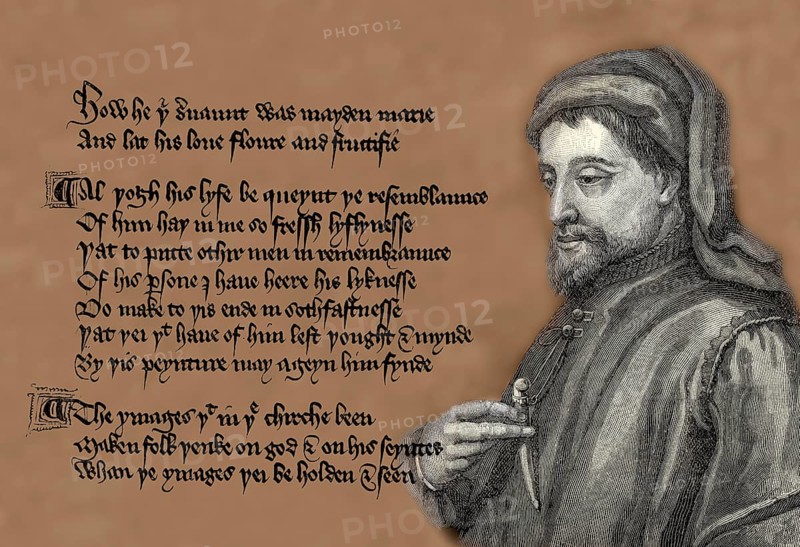 How he þͤ s̄uaunt was mayden marie
And lat his loue floure and fructifie
Al þogh his lyfe be queynt þe resemblaunce
Of him haþ in me so fressh lyflynesse
Þat to putte othir men in remembraunce
Of his ꝑsone I haue heere his lyknesse
Do make to þis ende in sothfastnesse
Þat þei þͭ haue of him left þought & mynde
By þis peynture may ageyn him fynde
The ymages þͭ in þͤ chirche been
Maken folk þenke on god & on his seyntes
Whan þe ymages þei be holden & seen
PHOTO12